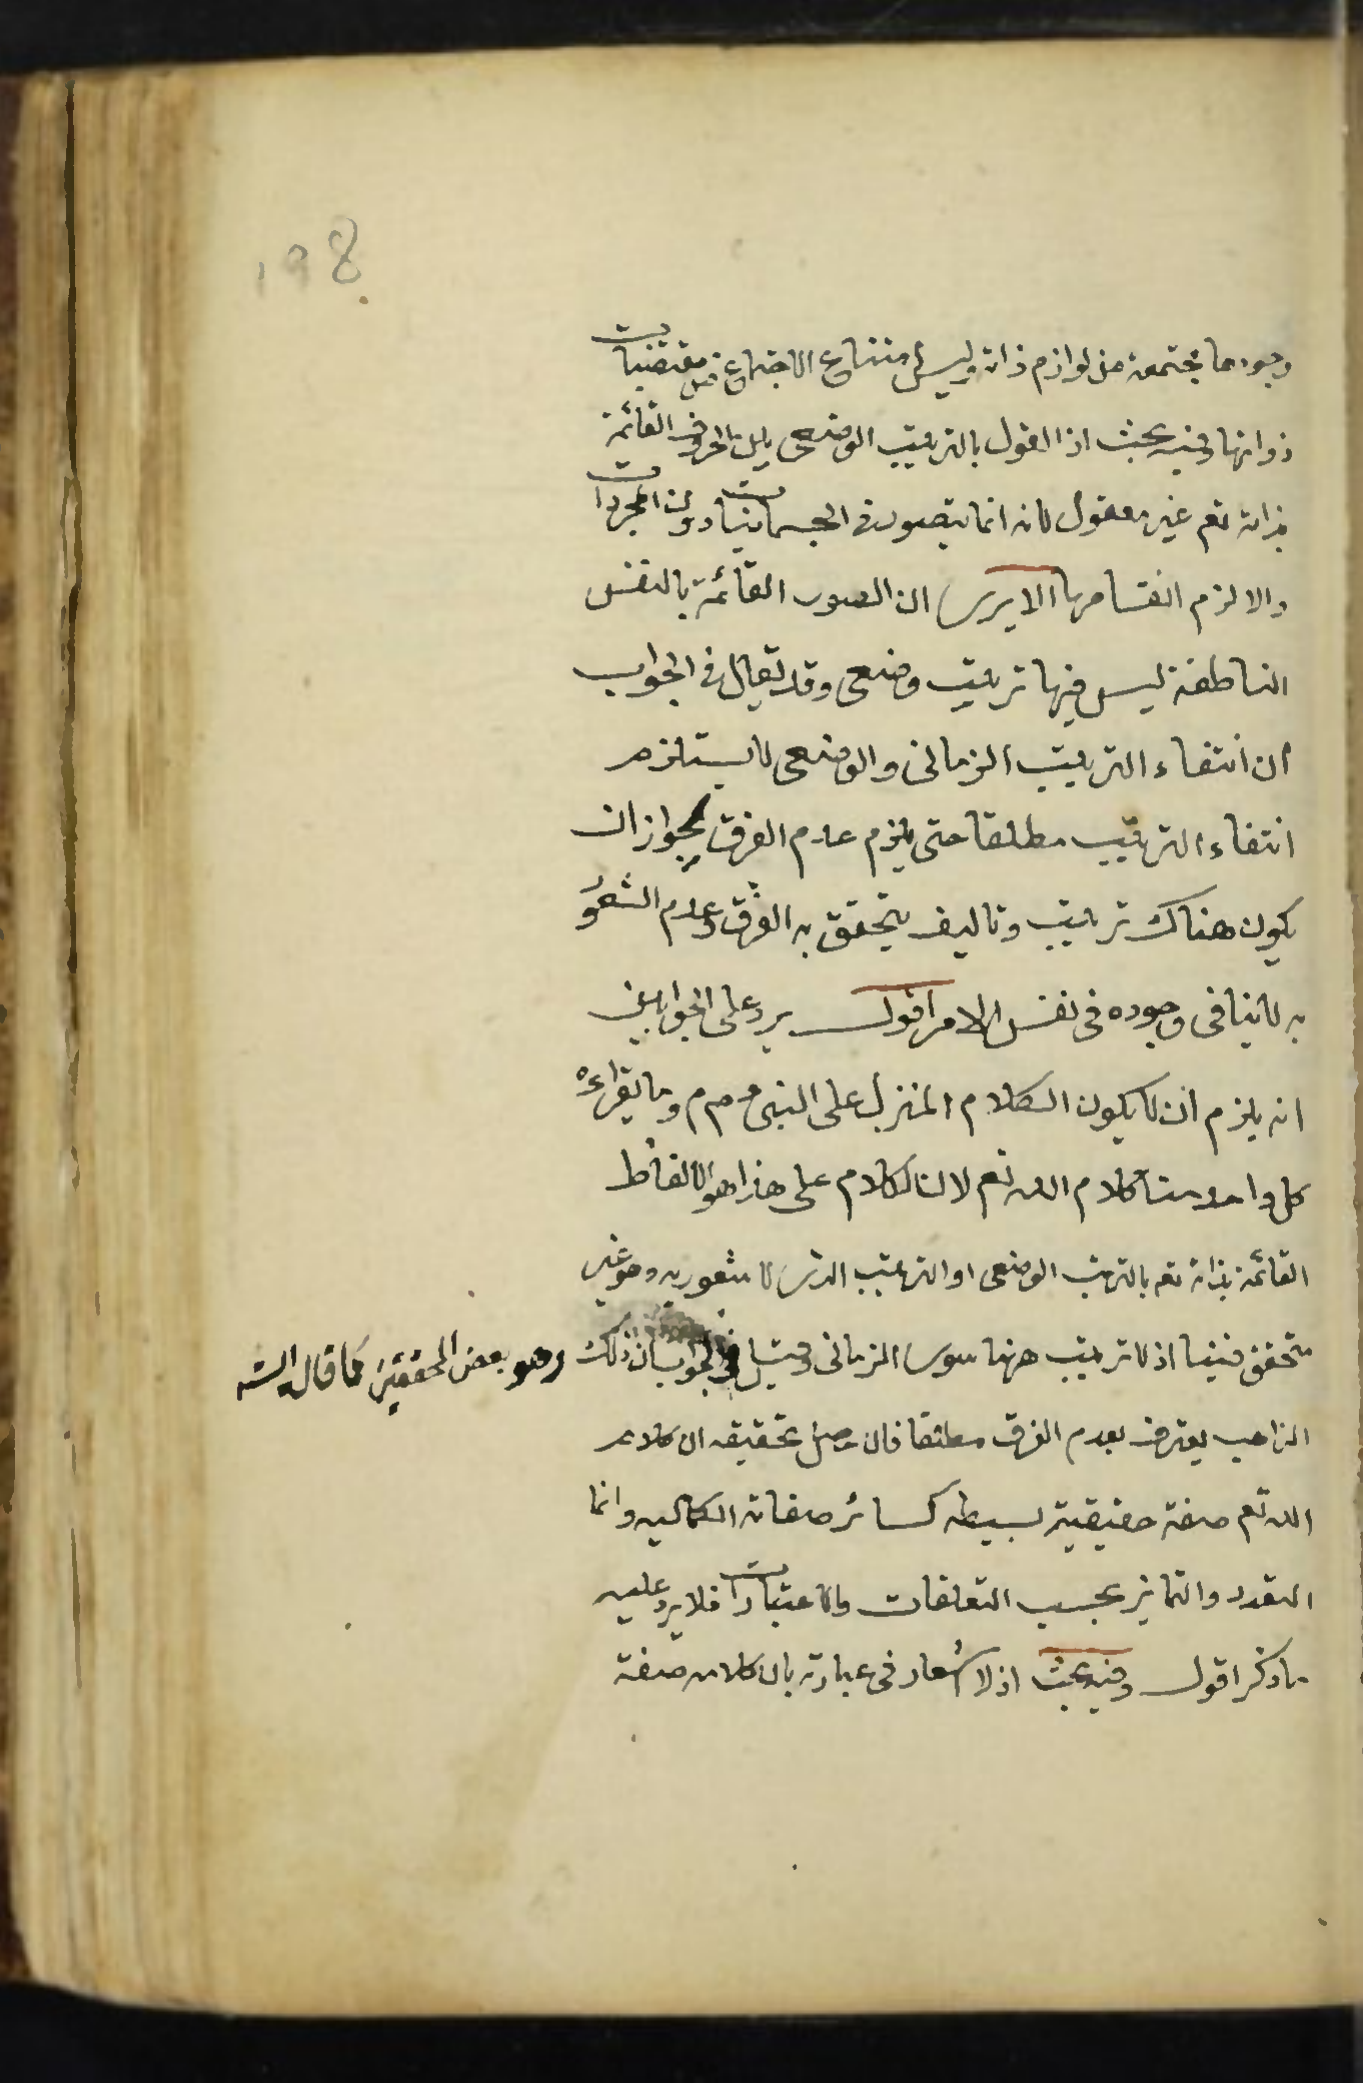 198
وجودها مجتمعة من لوازم ذاته وليس امتناع الاجتماع من مقتضيات
ذواتها وفيه بحث اذ القول بالترتيب الوضعي بين الحروف القائمة
بذاته تعم غير معقول لانه انما يتصور في الجسمانيات دون المجردات
والا لزم انقسامها الا يرى ان الصور القائمة بالنفس
الناطقة ليس فيها ترتيب وضعى وقد يقال في الجواب
ان انتفاء الترتيب الزمانى والوضعى لا يستلزم
انتفاء الترتيب مطلقا حتى يلزم عدم الفرق لجواز ان
يكون هناك ترتيب وتاليف يتحقق به الفرق وعدم الشعور
به لا ينافى وجوده فى نفس الامر اقول يرد على الجوابين
انه يلزم ان لا يكون الكلام المنزل على النبى عم وما يقراءه
كل واحد منا كلام الله تعم لان الكلام على هذا هو الالفاظ
القائمة بذاته تعم بالترتيب الوضعى او الترتيب الذى لا شعور به وهو غير
متحقق فينا اذ لا ترتيب ههنا سوى الزمانى وقيل في الجواب ان ذلك
وهو بعض المحققين كما قال الش
الذاهب يعترف بعدم الفرق مطلقا فان حاصل تحقيقه ان كلام
الله تعم صفة حقيقية بسيطه كسائر صفاته الكماليه وانما
التعدد والتمايز بحسب التعلقات والاعتبارات فلا يرد عليه
ما ذكر اقول وفيه بحث اذ لا اشعار فى عبارته بان كلامه صفة